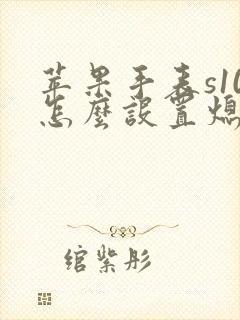 苹果手表s10
怎麼設置熄
绾紫彤